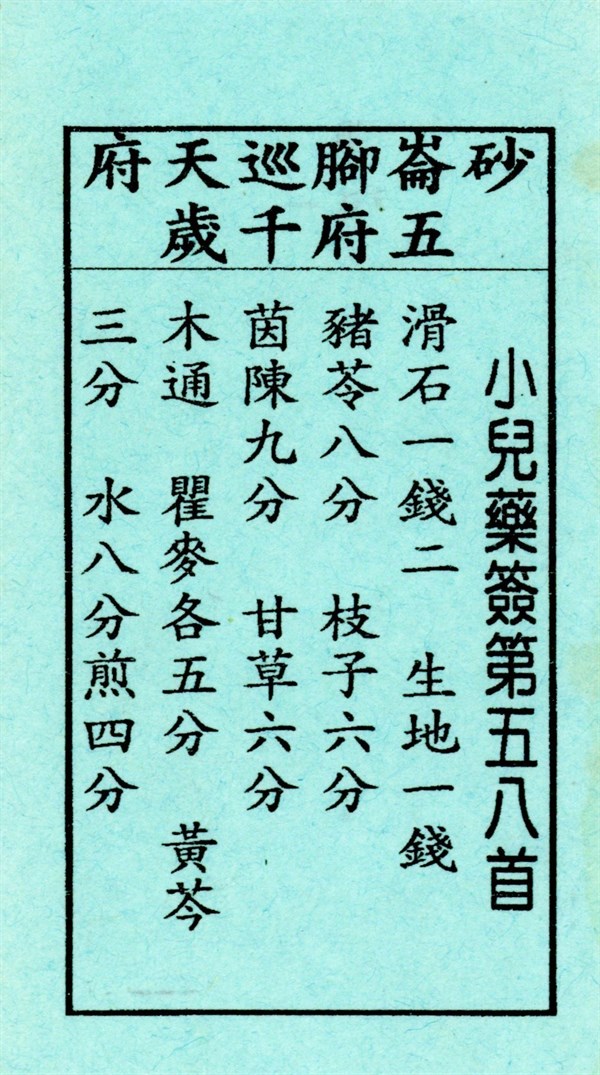 砂崙腳巡天府
五府千歲
小兒藥簽第五八首
滑石一錢二　生地一錢
豬苓八分　枝子六分
茵陳九分　甘草六分
木通　瞿麥各五分　黃芩
三分　水八分煎四分